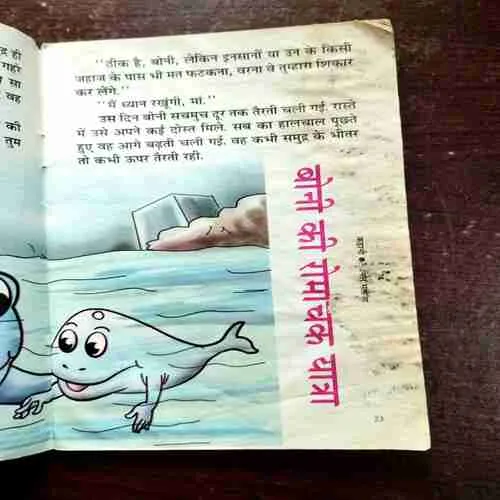 द्र ही
गहरे
सा
वह
की
तुम
‘‘ठीक है, बोनी, लेकिन इनसानों या उन के किसी
जहाज के पास भी मत फटकना, वरना वे तुम्हारा शिकार
कर लेंगे.’’
‘‘मैं ध्यान रखूंगी, मां.’’
उस दिन बोनी सचमुच दूर तक तैरती चली गई. रास्ते
में उसे अपने कई दोस्त मिले. सब का हालचाल पूछते
हुए वह आगे बढ़ती चली गई. वह कभी समुद्र के भीतर
तो कभी ऊपर तैरती रही.
बोनी की रोमांचक यात्रा
कहानी •
23